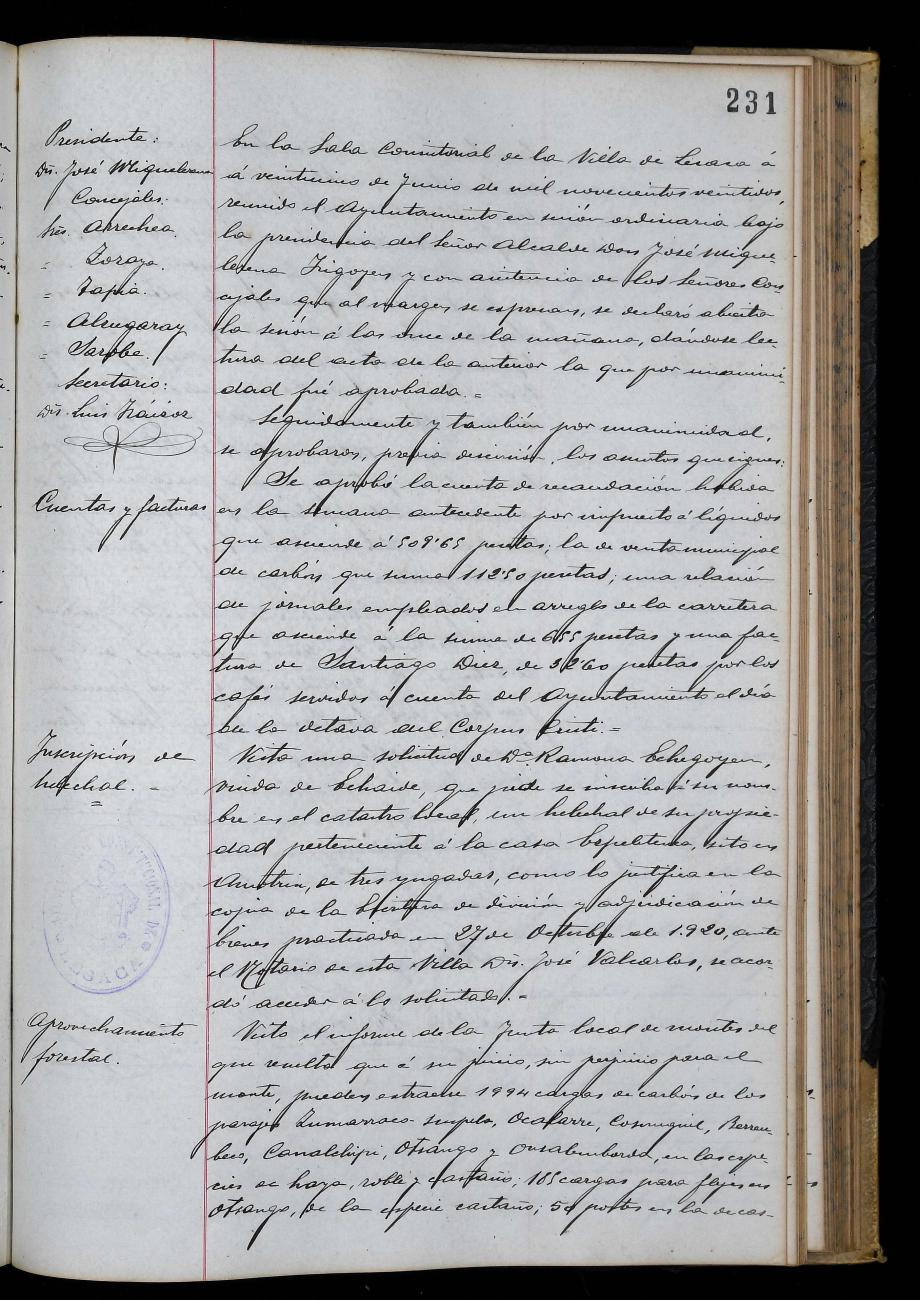 231
Presidente:
Dn. José Miquelerena
Concejales:
Sres. Arrechea.
" Zoraya.
" Tapia.
" Alzugaray
" Sarobe.
Secretario:
Dn. Luis Izáizoz
En la Sala Consistorial de la Villa de Lesaca á
á veinticinco de Junio de mil novecientos veintidos,
reunido el Ayuntamiento en sesión ordinaria bajo
la presidencia del Señor Alcalde Don José Mique-
lerena Irigoyen y con asistencia de los Señores Con-
cejales que al margen se expresan, se declaró abierta
la sesión á las once de la mañana, dándose lec-
tura del acta de la anterior la que por unanimi-
dad fué aprobada.=
Seguidamente y también por unanimidad,
se aprobaron, previa discusión, los asuntos que siguen:
Cuentas y facturas
Se aprobó la cuenta de recaudación habida
en la semana antecedente por impuesto á líquidos
que asciende á 509'65 pesetas; la de venta municipal
de carbón que suma 112'50 pesetas; una relación
de jornales empleados en arreglo de la carretera
que asciende á la suma de 655 pesetas y una fac-
tura de Santiago Diez, de 32'60 pesetas por los
cafés servidos á cuenta del Ayuntamiento el día
de la octava del Corpus Cristi.=
Inscripción de
helechal.=
Vista una solicitud de Da. Ramona Echegoyen,
viuda de Echaide, que pide se inscriba á su nom-
bre en el catastro local, un helechal de su propie-
dad perteneciente á la casa Espeliterea, sito en
de tres yugadas, como lo justifica en la
copia de la Escritura de división y adjudicación de
bienes practicada en 27 de Octubre de 1.920, ante
el Notario de esta Villa Dn. José Valcarlos, se acor-
dó acceder á lo solicitado.=
Aprovechamiento
forestal.
Visto el informe de la Junta local de montes del
que resulta que á su juicio, sin perjuicio para el
monte, pueden extraerse 1994 cargas de carbón de los
parajes Zumarraco-surpela, Ocalarre, Berrem-
beco, Canalchipi, Otsango y Onsalemborda, en las espe-
cies de haya, roble y castaño; 105 cargas para flejes en
Otsango, de la especie castaño; 50 postes en la de cas-